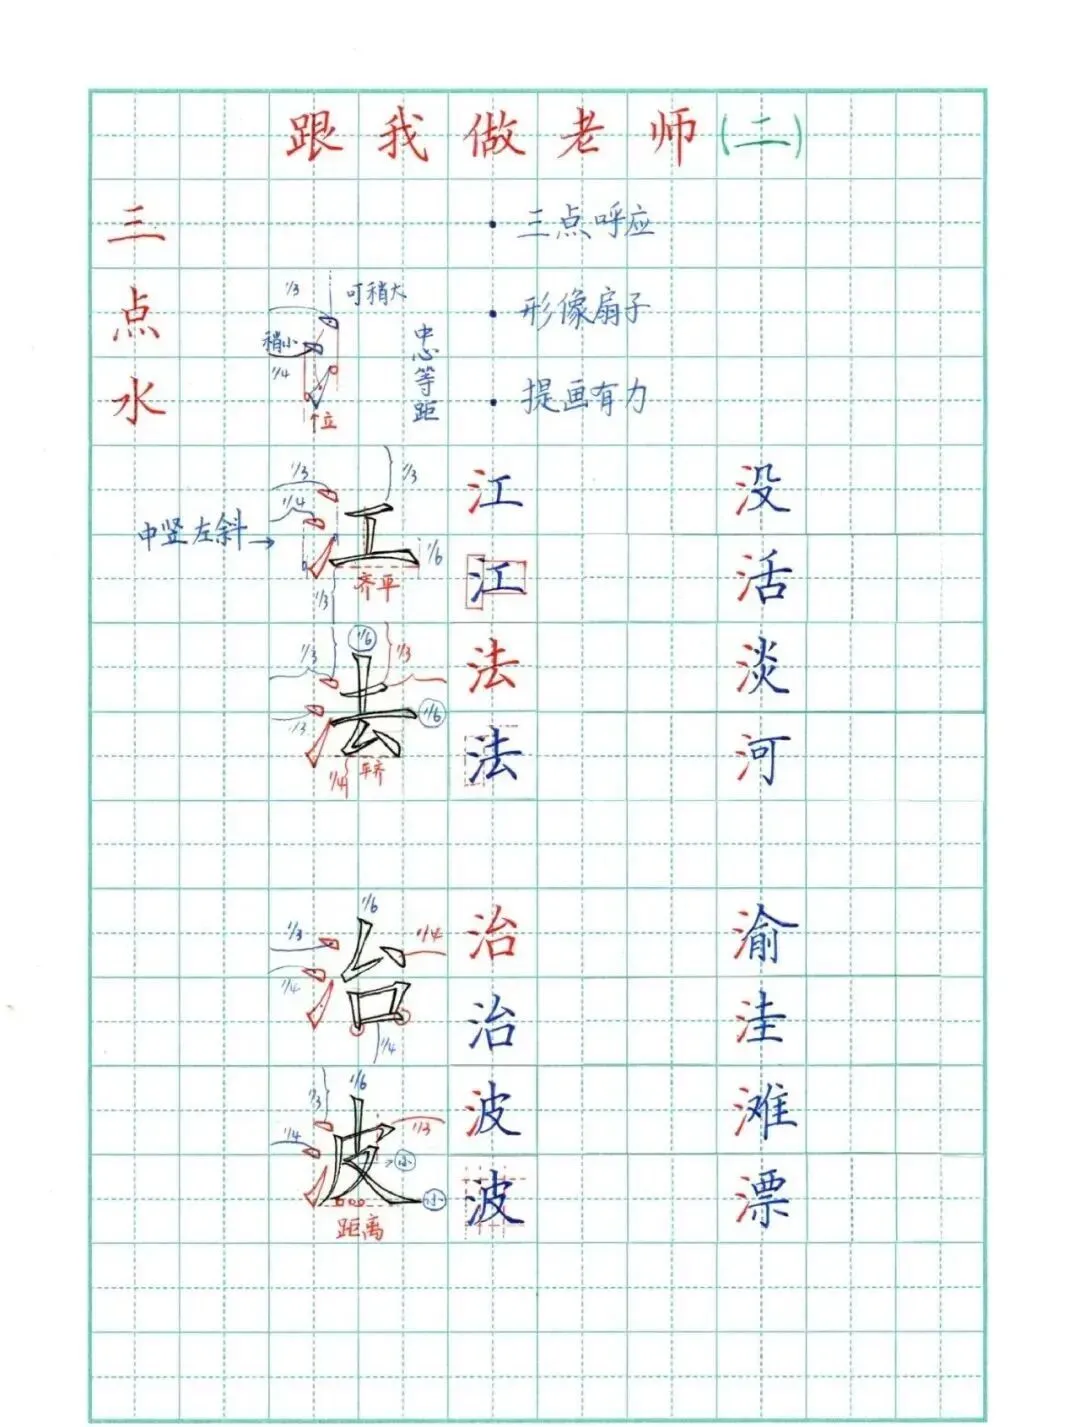 跟我做老师(二)
三点水
· 三点呼应
1/3
可稍大
稍小
1/4
中心等距
· 形像扇子
· 提画有力
↑位
1/3
1/3
1/4
中竖左斜→
工
1/6
齐平
1/3
江
没
江
活
1/6
1/3
1/3
法
1/3
1/6
1/4
平齐
法
淡
法
河
1/6
1/3
1/4
1/4
治
1/4
治
渝
治
洼
1/6
1/3
1/4
1/3
波
小
小
距离
波
滩
波
漂